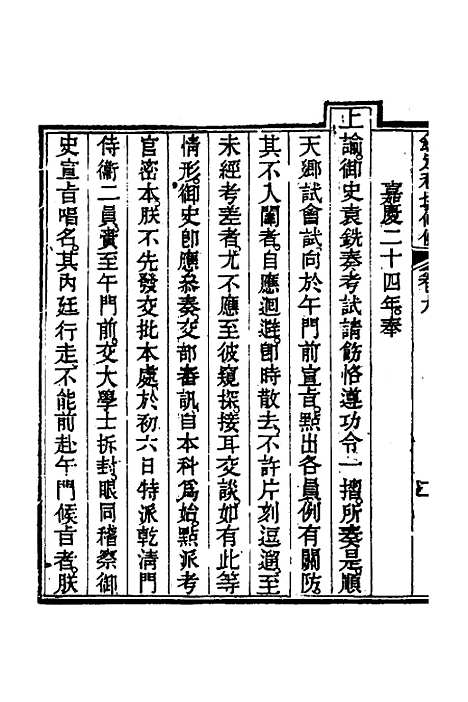 嘉慶二十四年。奉
上諭。御史袁銑奏考試請飭恪遵功令一摺。所奏是。順
天鄉試會試向於午門前宣㫖。點出各員。例有關防。
其不入闈者。自應迴避。卽時散去。不許片刻逗遛。至
未經考差者。尤不應至彼窺探。接耳交談。如有此等
情形。御史卽應叅奏。交部審訊。自本科爲始。點派考
官密本。朕不先發交批本處。於初六日特派乾淸門
侍衞二員。賫至午門前。交大學士拆封。眼同稽察御
史宣㫖唱名。其內廷行走。不能前赴午門候㫖者。朕